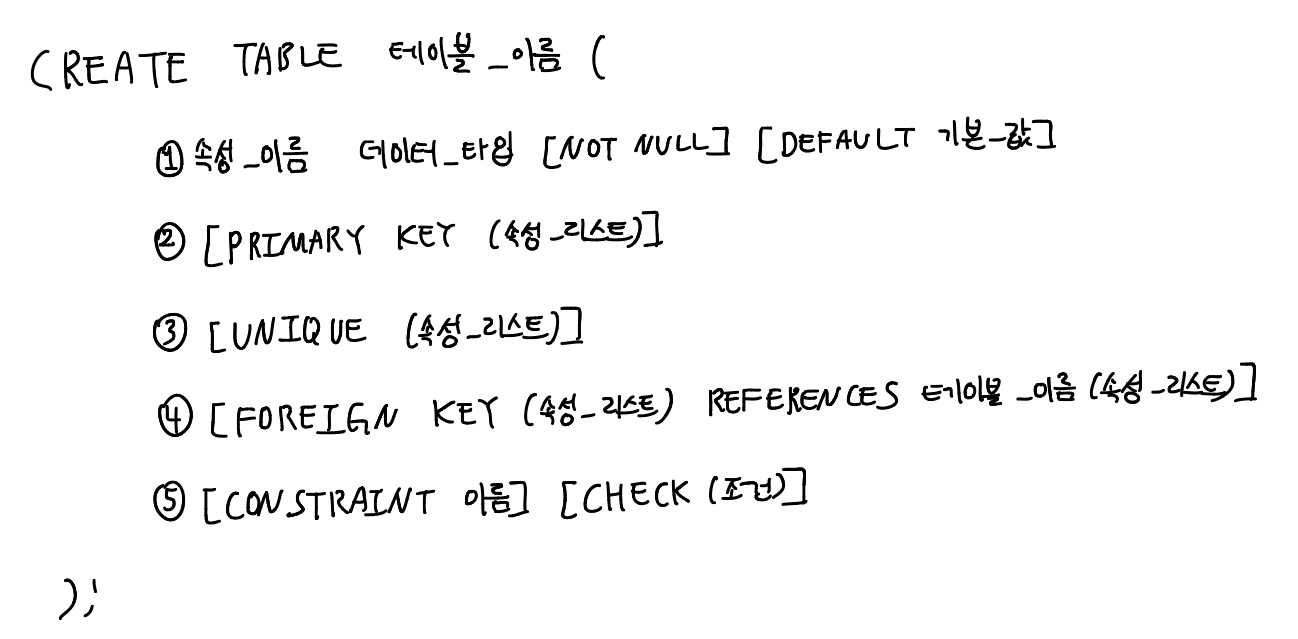 CREATE TABLE 테이블_이름 (
① 속성_이름 데이터_타입 [NOT NULL] [DEFAULT 기본_값]
② [PRIMARY KEY (속성_리스트)]
③ [UNIQUE (속성_리스트)]
④ [FOREIGN KEY (속성_리스트) REFERENCES 테이블_이름 (속성_리스트)]
⑤ [CONSTRAINT 이름] [CHECK (조건)]
);